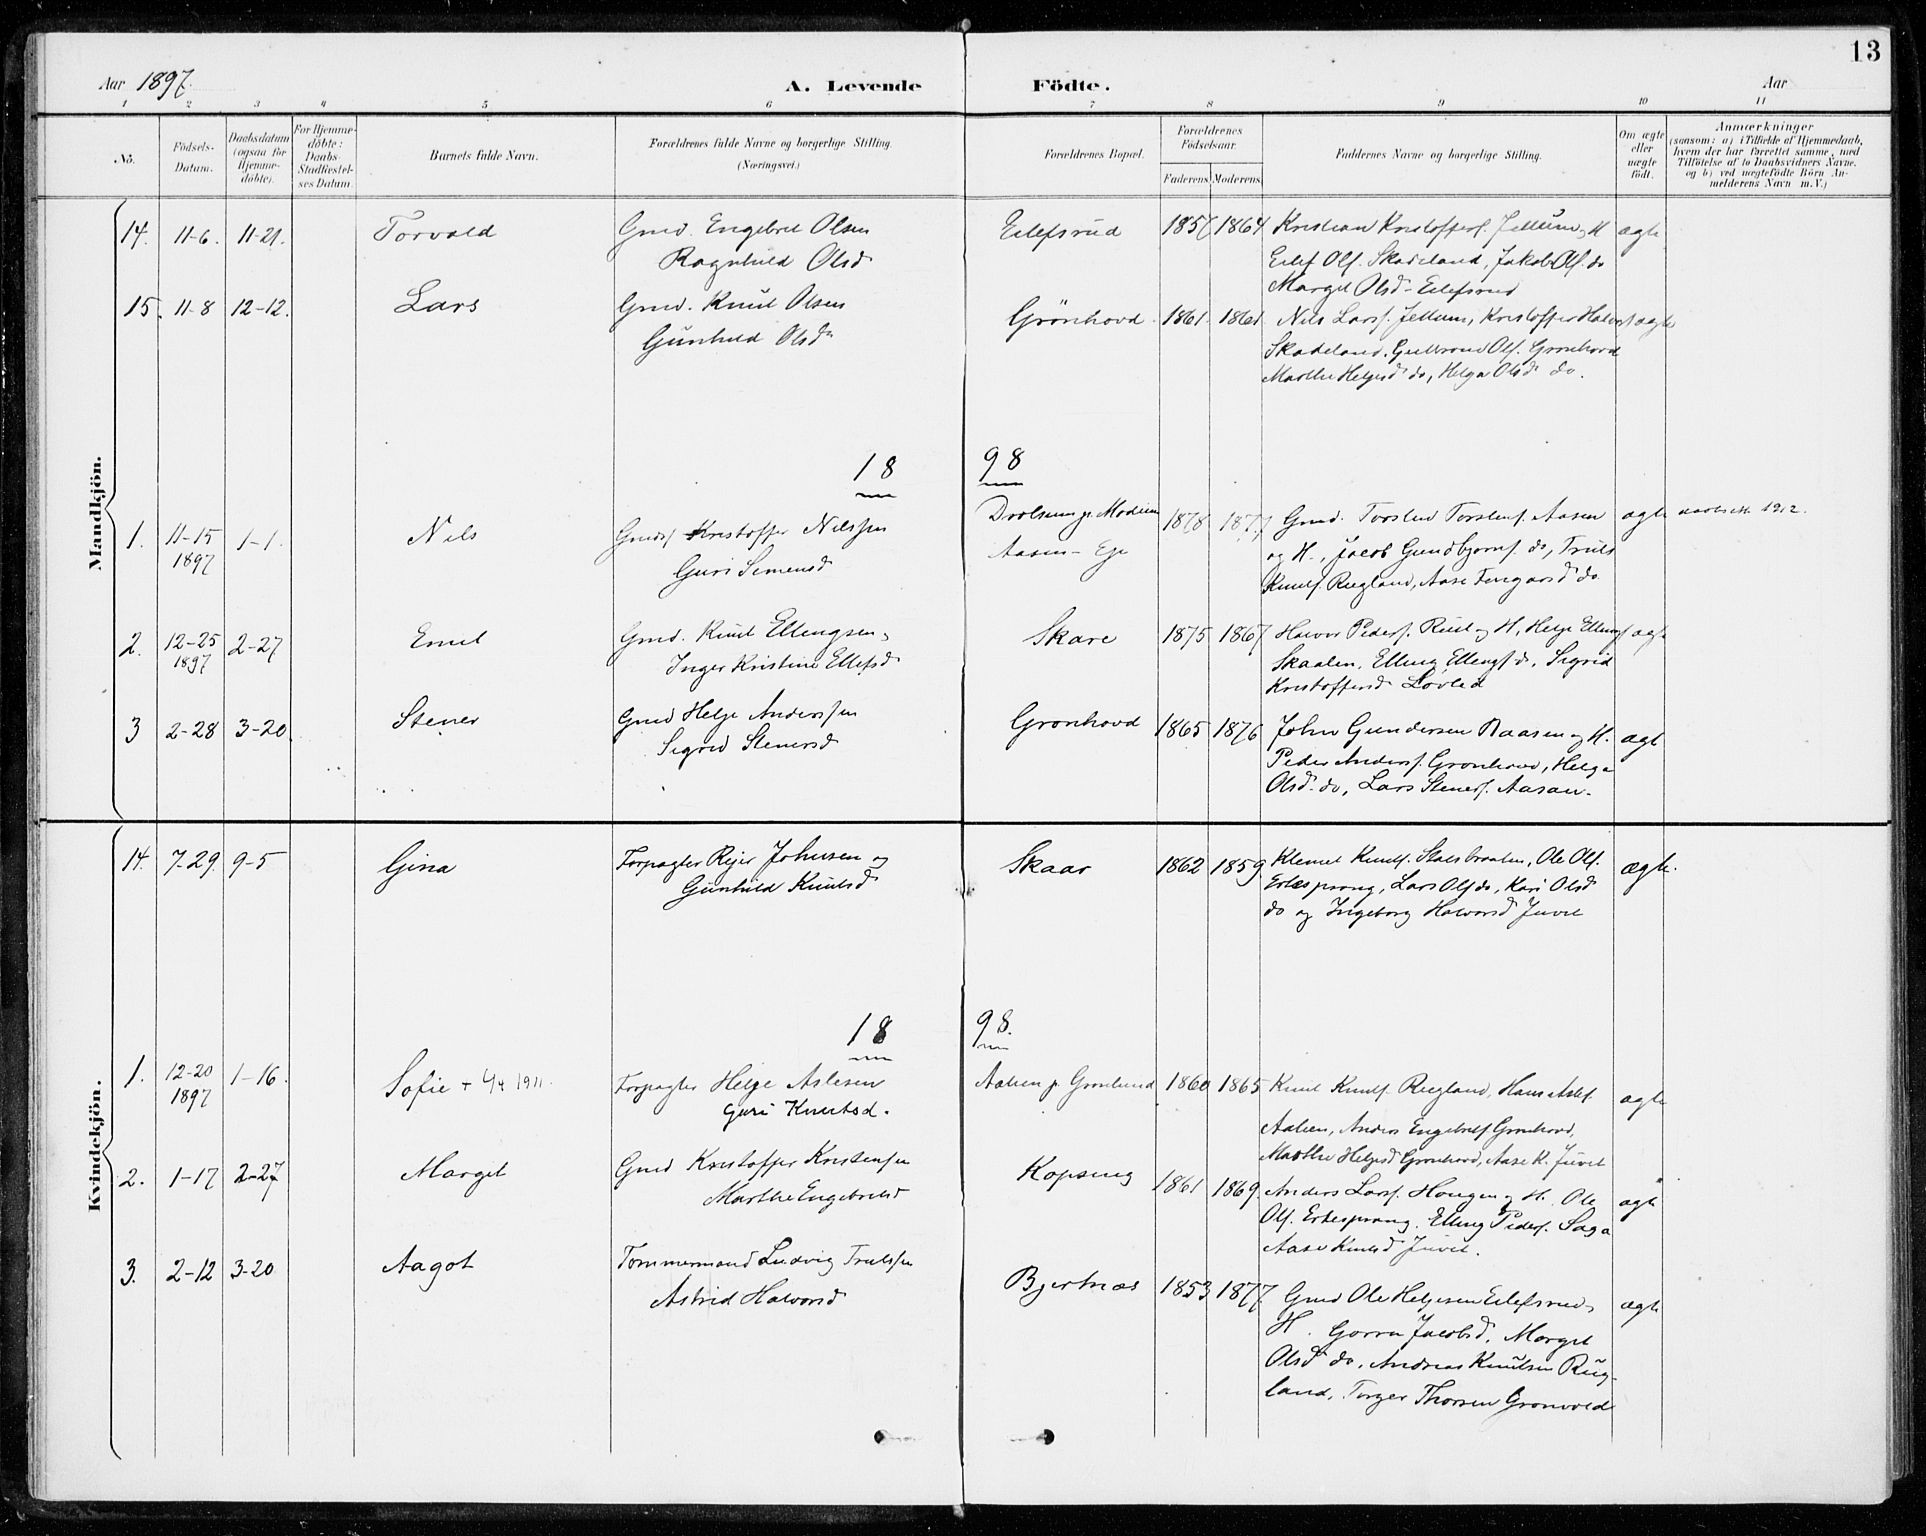 13
Aar 1897.
A. Levende Födte.
Aar
1 2 3 4 5 6 7 8 9 10 11
No.
Födsels-Datum.
Daabsdatum (ogsaa for Hjemme-döbte).
For Hjemme-döbte: Daabs-Stadfæstel-ses Datum.
Barnets fulde Navn.
Forældrenes fulde Navne og borgerlige Stilling. (Næringsvei.)
Forældrenes Bopæl.
Forældrenes Födselsaar.
Faderens. Moderens.
Faddernes Navne og borgerlige Stilling.
Om ægte eller uægte födt.
Anmærkninger
(saasom: a) i Tilfælde af Hjemmedaab, hvem der har forrettet samme, med Tilföielse af to Daabsvidners Navne, og b) ved uægtefödte Börn An-melderens Navn m. V.)
Mandkjön.
14. 11-6. 11-21. Torvald Gmd. Engebret Olsen Eilefsrud 1857 1864 Kristian Kristoffers. Jellum og H ægte
Ragnhild Olsd Eilef Ols. Skadeland, Jakob Ols. do
Margit Olsd - Eilefsrud
15. 11-8 12-12. Lars Gmd. Knut Olsen Grönhovd. 1861. 1861 Nils Lars. Jellum, Kristoffer Halvors. ægte
Gunhild Olsd. Skadeland, Gulbrand Ols. Grønhovd
Marthe Helgesd do, Helga Olsd do.
18 98
1. 11-15 1897 1-1. Nils Gmds. Kristoffer Nilssen Drolsum p. Modum 1878 1877 Gmd. Torsten Torstens. Aasen ægte 1912.
Guri Simensd Aasen - Eje og H., Jacob Gundbjørns. do, Truls
Knuts. Rugland, Aase do
2. 12-25 1897 2-27 Emil Gmd. Knut Ellingsen, Skare 1875 1867 Halvor Peders. Rust og H, Helge Ellings. ægte
Inger Kristine Ellefsd Skaalen, Elling Ellings. do, Sigrid
Kristoffersd Løvlid
3 2-28 3-20. Stener Gmd Helge Anderssen Gronhovd 1865 1876 John Gundersen Aaasen og H. ægte
Sigrid Stenersd Peder Anders. Gronhovd, Helga
Olsd. do, Lars Steners. Aasan.
Kvindekjön.
14. 7-29. 9-5 Gina Forpagter Reier Johnsen og Skaar 1862 1859 Klemet Knuts. Stalsbraaten, Ole Ols. ægte.
Gunhild Knutsd Ertesprang, Lars Ols do, Kari Olsd
do og Ingeborg Halvorsd Juvet
18 98.
1. 12-20 1897 1-16. Sofie + 4/4 1911. Forpagter Helge Aslesen Aalien p. Gronlund 1860 1865 Knut Knuts. Rugland, Hans Asles. ægte
Guri Knutsd. Aalien, Anders Engebrets Gronhovd,
Marthe Helgesd Gronhovd, Aase K. Juvet
2. 1-17 2-27 Margit Gmd Kristoffer Kristensen Kopseng 1861 1869. Anders Lars. Haugen og H. Ole ægte
Marthe Engebretsd Ols. Ertesprang. Elling Peders. Saga
Aase Knutsd Juvet.
3. 2-12 3-20 Aagot Tommermand Ludvig Trulssen Bjertnæs 1853 1877. Gmd Ole Helgesen Eilefsrud, ægte
Astrid Halvorsd H. Gorra Jacobsd. Margit
Olsd do, Andreas Knutsen Rug-
land, Torger Thorsen Gronvold